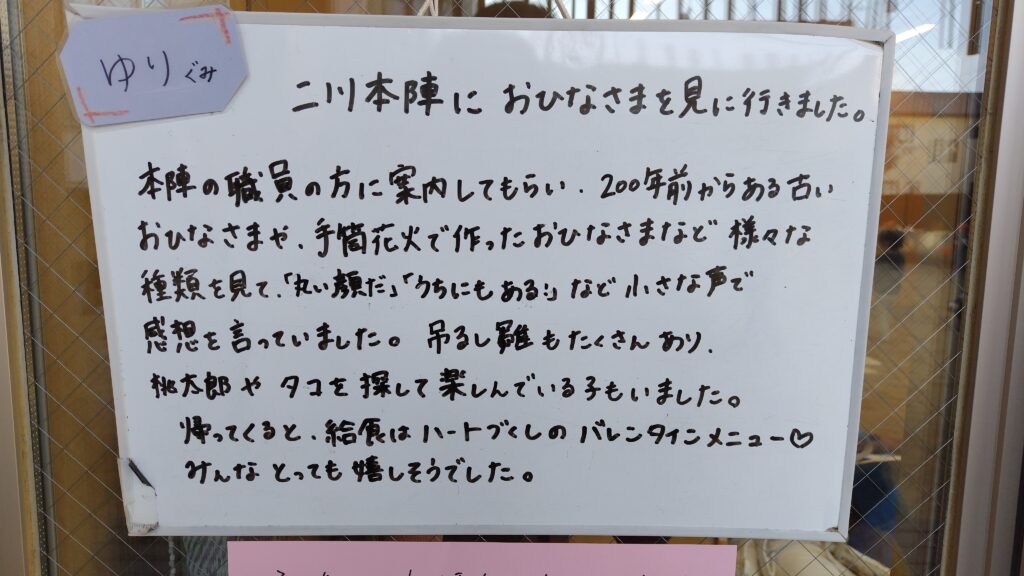 ゆりぐみ
二川本陣に おひなさまを見に行きました。
本陣の職員の方に案内してもらい、200年前からある古い
おひなさまや、手筒花火で作ったおひなさまなど 様々な
種類を見て、「丸い顔だ」「うちにもある!」など 小さな声で
感想を言っていました。 吊るし雛もたくさんあり、
桃太郎や タコを探して楽しんでいる子もいました。
帰ってくると、給食はハートづくしの バレンタインメニュー♡
みんな とっても嬉しそうでした。